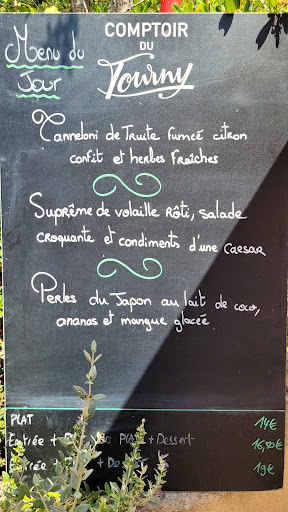 Menu du
Jour
COMPTOIR
DU
Tourny
Canneloni de Truite fumée citron
confit et herbes fraîches
Suprême de volaille Rôti, salade
croquante et condiments d'une Caesar
Perles du Japon au lait de coco,
ananas et mangue glacée
PLAT 14€
Entrée + Plat + Dessert 16,50€
Entrée + + Dessert 19€